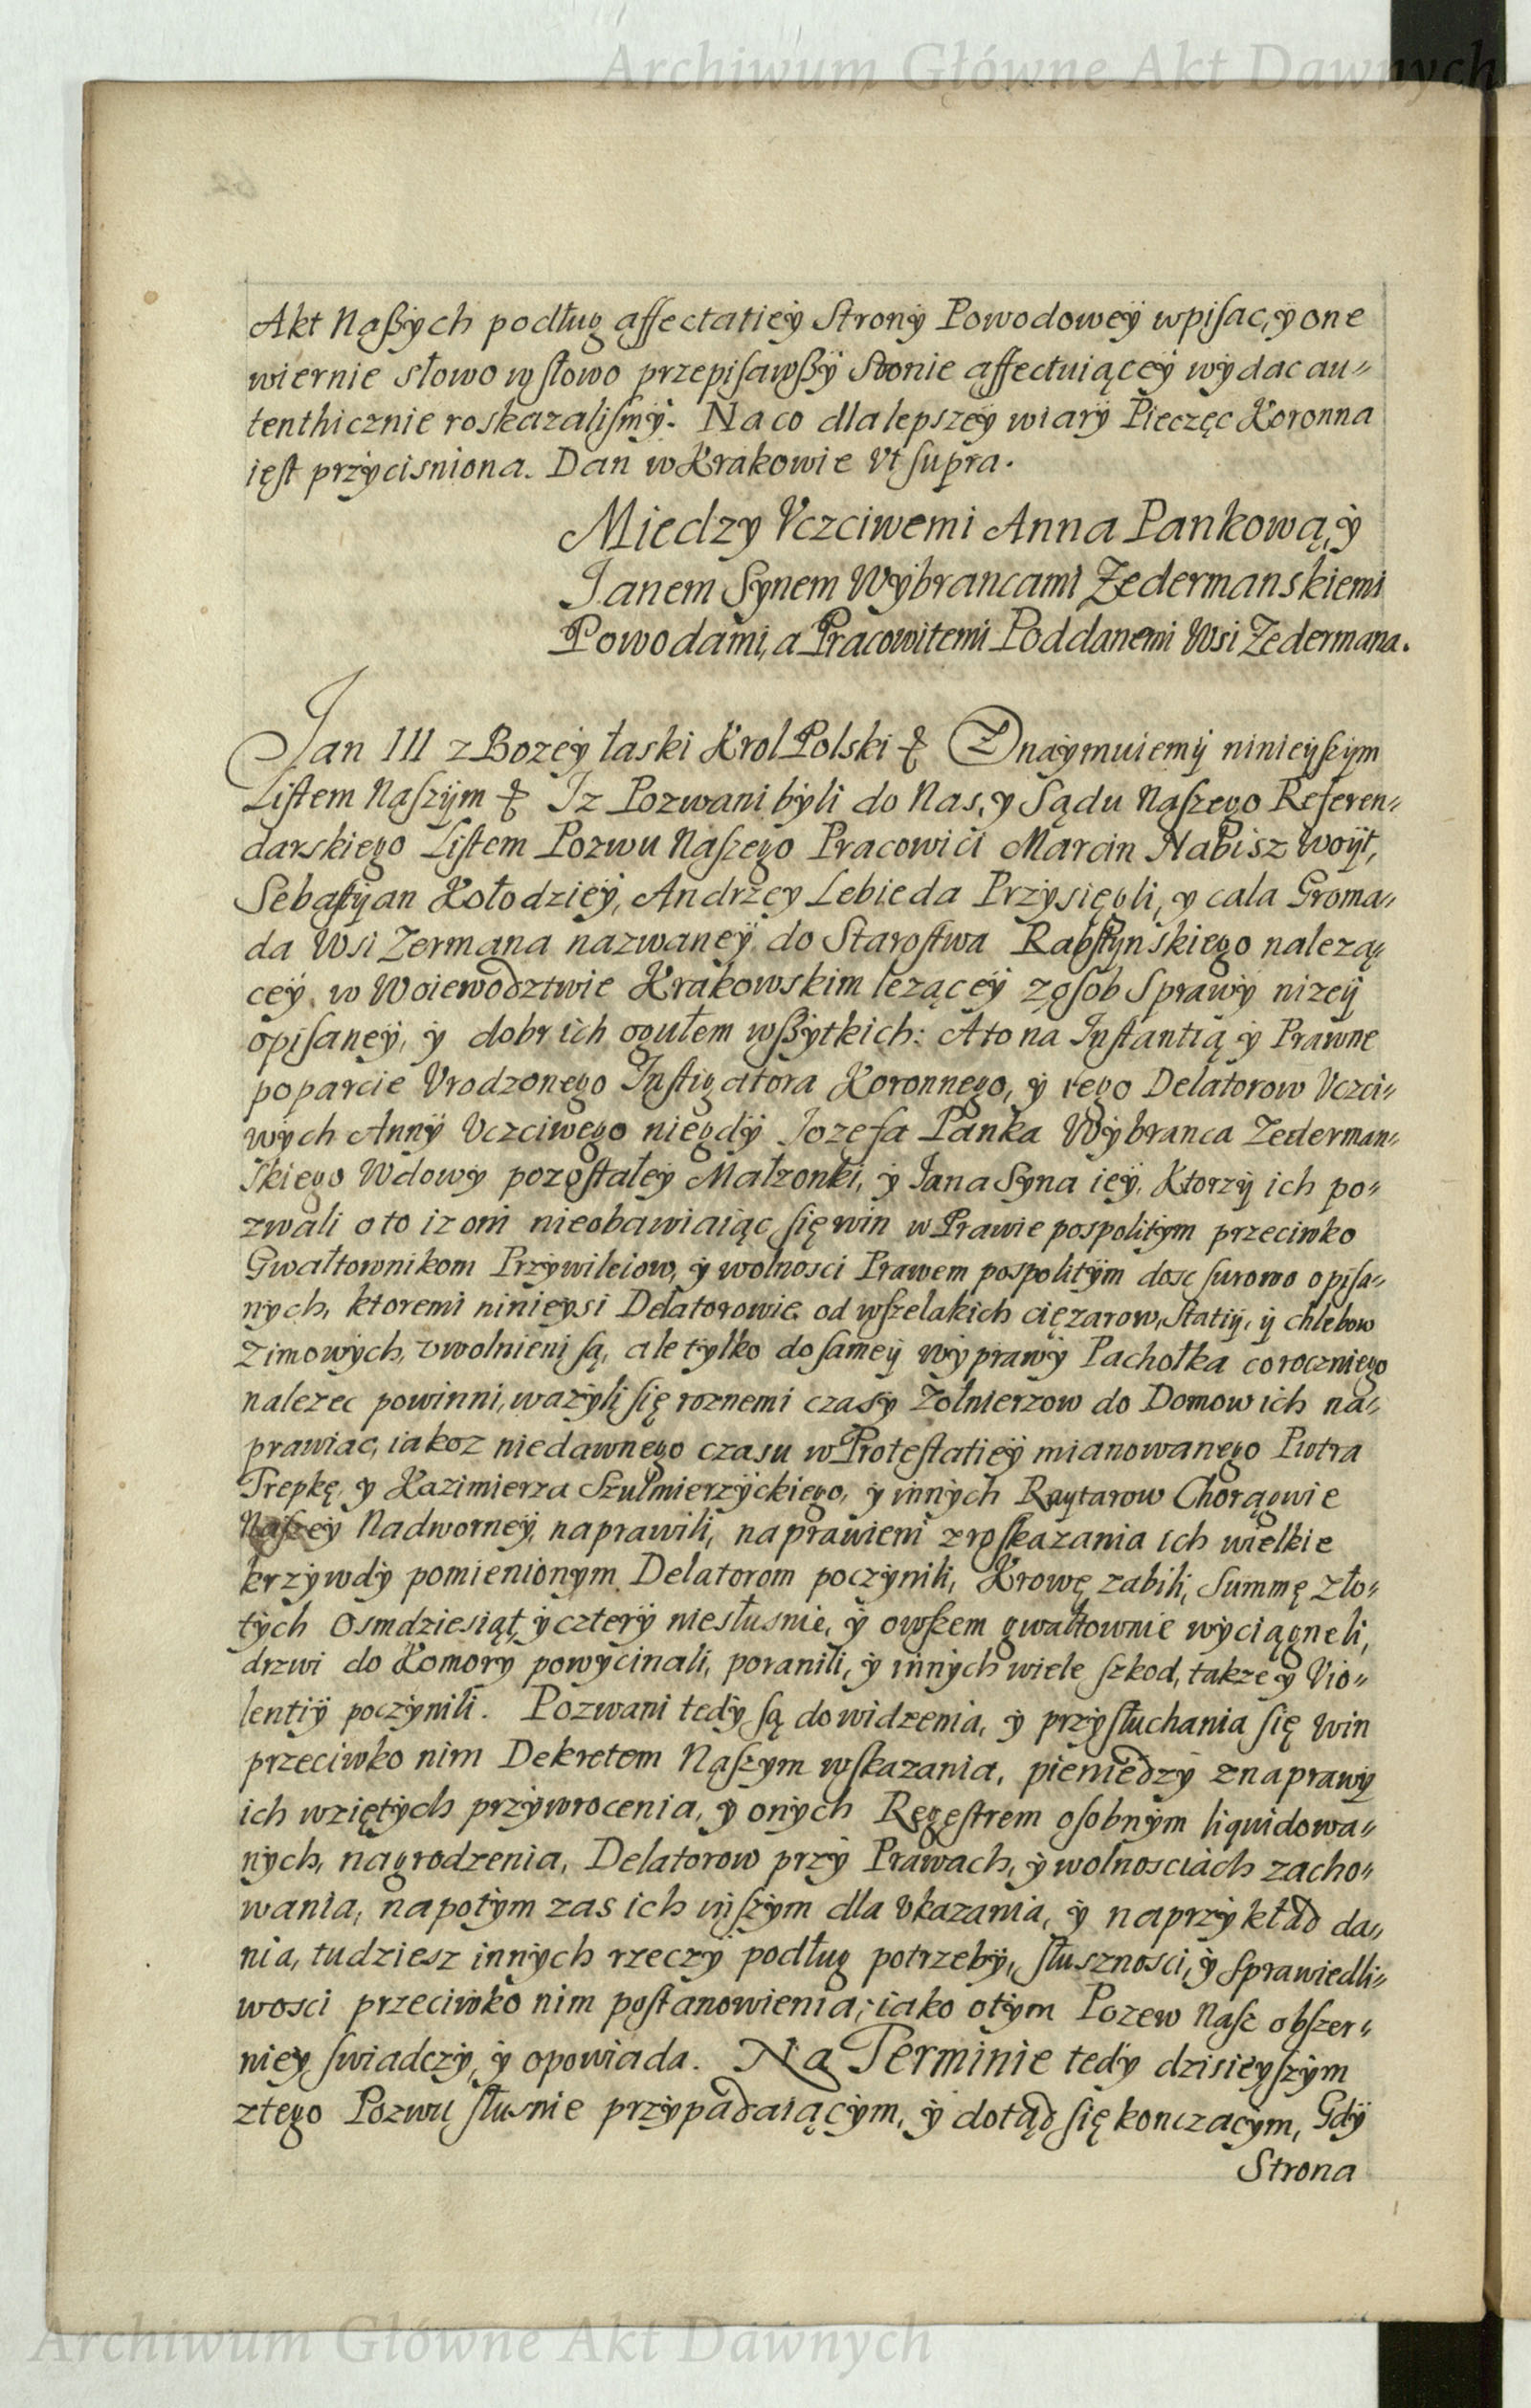 Archiwum Główne Akt Dawnych
Akt Naßych podług affectatiey Strony Powodowey wpisac, y one
wiernie słowo w słowo przepisawßy Stronie affectuiącey wydac au-
tenthicznie roskazalismy. Na co dla lepszey wiary Pieczęc Koronna
iest przycisniona. Dan w Krakowie Vt supra.
Miedzy Vczciwemi Anna Pankową, y
Janem Synem Wybrancami Zedermanskiemi
Powodami, a Pracowitemi Poddanemi Wsi Zedermana.
Jan III z Bozey łaski Krol Polski & Znaymuiemy ninieyszym
Listem Naszym & Iz Pozwani byli do Nas, y Sądu Naszego Referen-
darskiego Listem Pozwu Naszego Pracowici Marcin Nabisz Woyt,
Sebastyan Kołodziey, Andrzey Lebieda Przysięgli, y cala Groma-
da Wsi Zermana nazwaney do Starostwa Rabstynskiego nalezą-
cey, w Woiewodztwie Krakowskim lezącey z osob Sprawy nizey
opisaney, y dobr ich ogułem wßytkich: A to na Instantią y Prawne
poparcie Vrodzonego Instigatora Koronnego, y iego Delatorow Vczci-
wych Anny Vczciwego niegdy Jozefa Panka Wybranca Zederman-
skiego Wdowy pozostałey Małzonki, y Jana Syna iey, Ktorzy ich po-
zwali o to iz oni nieobawiaiąc się win w Prawie pospolitym przeciwko
Gwałtownikom Przywileiow, y wolnosci Prawem pospolitym dosc surowo opisa-
nych, ktoremi ninieysi Delatorowie od wszelakich cięzarow, Statiy, y chlebow
Zimowych, vwolnieni są, ale tylko do samey wyprawy Pachołka coroczniego
nalezec powinni, wazyli się roznemi czasy Zołnierzow do Domow ich na-
prawiac, iakoz niedawnego czasu w Protestatiey mianowanego Piotra
Trepkę, y Kazimierza Szułmierzyckiego, y innych Raytarow Chorągwie
Naszey Nadworney, naprawili, naprawieni z roskazania ich wielkie
krzywdy pomienionym Delatorom poczynili, Krowę zabili, Summę zło-
tych Osmdziesiąt y cztery niesłusnie, y owszem gwałtownie wyciągneli,
drzwi do Komory powycinali, poranili, y innych wiele szkod, takze y Vio-
lentiy poczynili. Pozwani tedy są do widzenia, y przysłuchania się win
przeciwko nim Dekretem Naszym wskazania, pieniedzy z naprawy
ich wziętych przywrocenia, y onych Regestrem osobnym liquidowa-
nych, nagrodzenia, Delatorow przy Prawach, y wolnosciach zacho-
wania, napotym zas ich inszym dla Vkazania, y na przykład da-
nia, tudziesz innych rzeczy podług potrzeby, słusznosci, y sprawiedli-
wosci przeciwko nim postanowienia, iako o tym Pozew Nasz obszer-
niey swiadczy, y opowiada. Na Terminie tedy dzisieyszym
z tego Pozwu słusnie przypadaiącym, y dotąd się konczacym, Gdy
Strona
Archiwum Główne Akt Dawnych